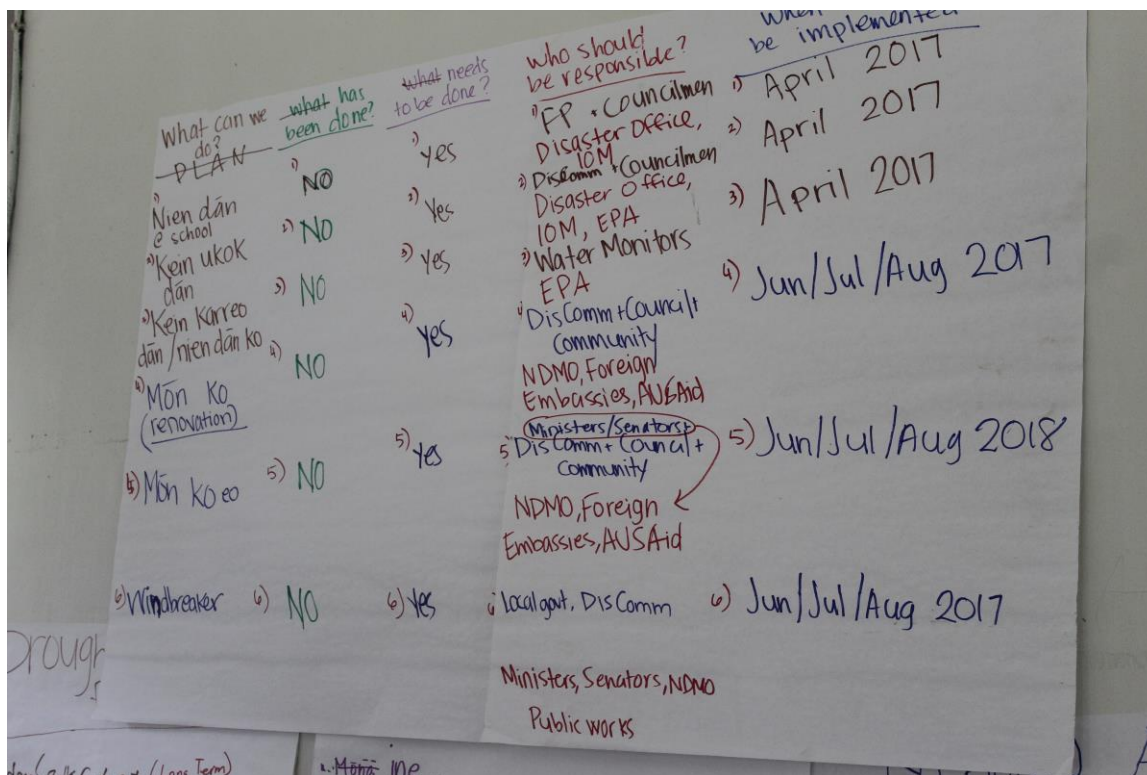 What can we
do?
PLAN
1) Nien dān
@ school
2) Kein ukok
dān
3) Kein Karreo
dān/nien dān ko
4) Mōn Ko
(renovation)
5) Mōn Ko eo
6) Windbreaker
What has
been done?
1) NO
2) NO
3) NO
4) NO
5) NO
6) NO
What needs
to be done?
1) yes
2) Yes
3) yes
4) yes
5) yes
6) Yes
Who should
be responsible?
1) FP + Councilmen
Disaster Office,
IOM
2) DisComm + Councilmen
Disaster Office,
IOM, EPA
3) Water Monitors
EPA
4) DisComm + Council +
Community
NDMO, Foreign
Embassies, AUSAid
Ministers/Senators+
5) DisComm + Council +
Community
NDMO, Foreign
Embassies, AUSAid
6) Local govt, DisComm
Ministers, Senators, NDMO
Public works
When
be implemented
1) April 2017
2) April 2017
3) April 2017
4) Jun/Jul/Aug 2017
5) Jun/Jul/Aug 2018
6) Jun/Jul/Aug 2017
(Long Term)
ine